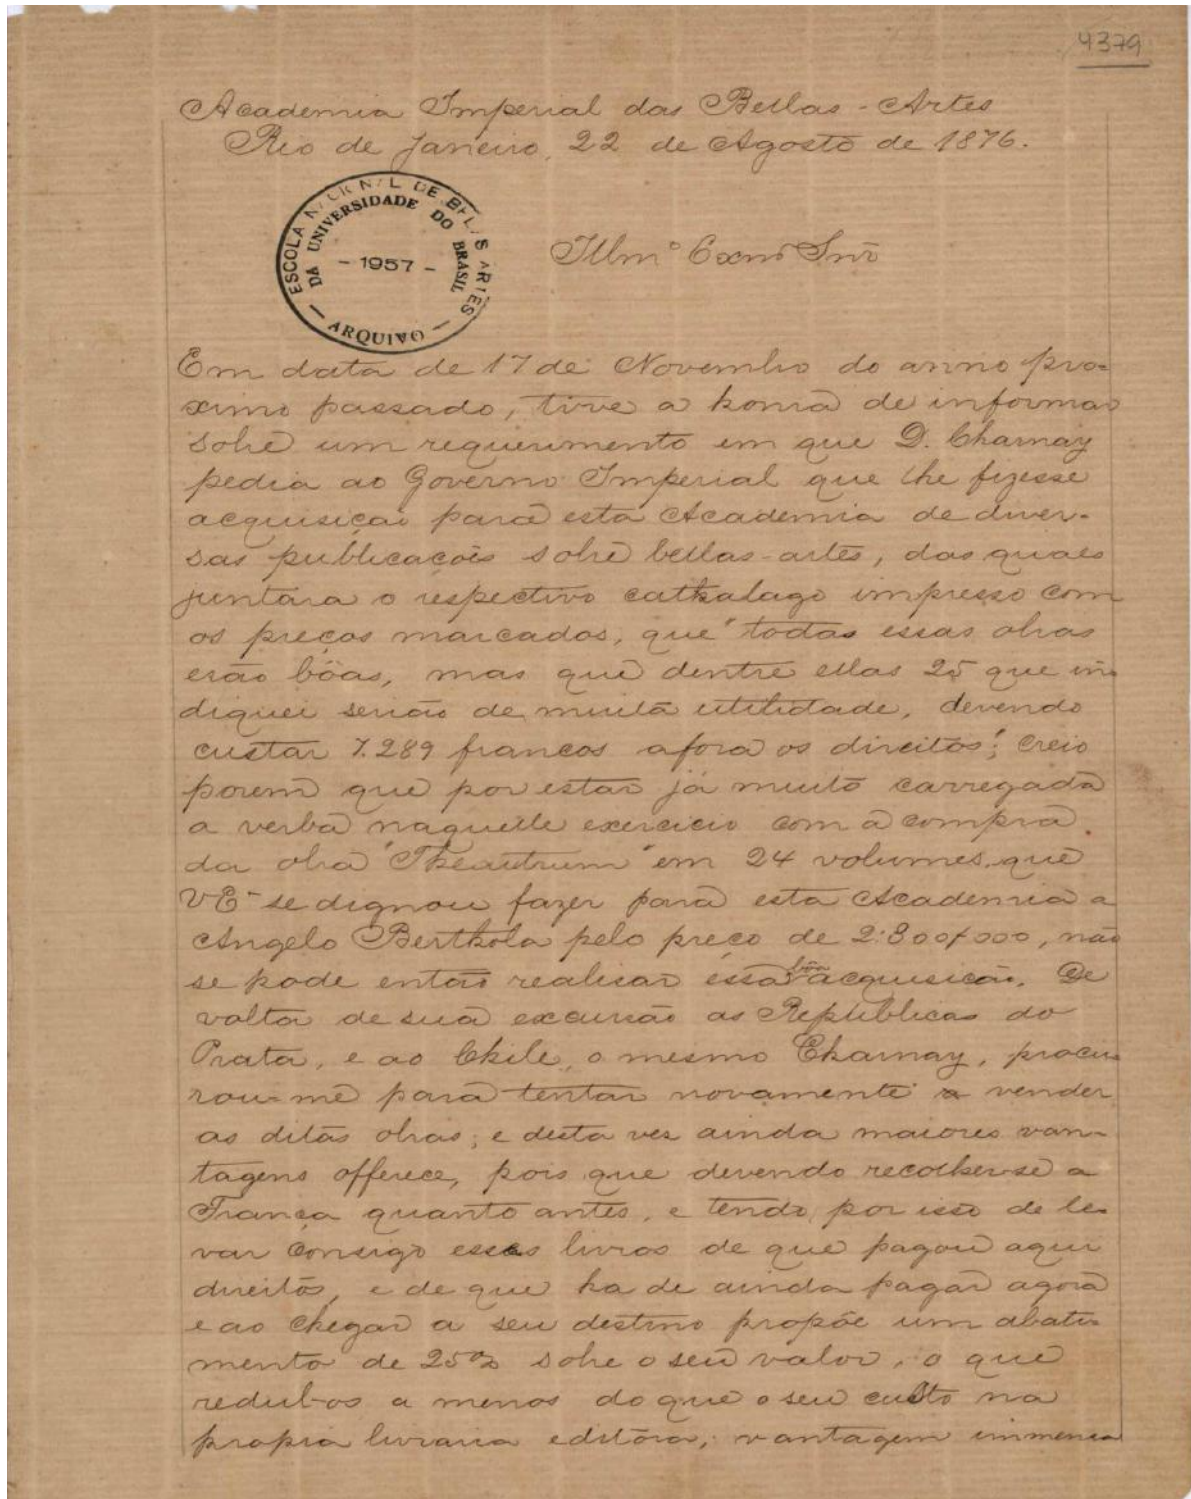 4379
Academia Imperial das Bellas-Artes
Rio de Janeiro, 22 de Agosto de 1876.
ESCOLA NACIONAL DE BELAS ARTES
DA UNIVERSIDADE DO BRASIL
- 1957 -
ARQUIVO
Illmº Exmº Snr
Em data de 17 de Novembro do anno pro-
ximo passado, tive a honra de informar
sobre um requerimento em que D. Charnay
pedia ao Governo Imperial que lhe fizesse
acquisição para esta Academia de diver-
sas publicações sobre bellas-artes, das quaes
juntara o respectivo cathalago impresso com
os preços marcados, que "todas essas obras
erão bôas, mas que dentre ellas 25 que in-
diquei serião de muita utilidade, devendo
custar 7.289 francos afora os direitos"; creio
porem que por estar já muito carregada
a verba naquelle exercicio com a compra
da obra "Theautrum" em 24 volumes que
VEª se dignou fazer para esta Academia a
Angelo Berthola pelo preço de 2:800$000, não
se pode então realisar essa bôa acquisição. De
volta de sua excursão as Republicas do
Prata, e ao Chile, o mesmo Charnay, procu-
rou-me para tentar novamente a vender
as ditas obras; e desta vez ainda maiores van-
tagens offerece, pois que devendo recolher-se a
França quanto antes, e tendo por isso de le-
var consigo esses livros de que pagou aqui
direitos, e de que ha de ainda pagar agora
e ao chegar a seu destino propõe um abati-
mento de 25% sobre o seu valor, o que
redul-os a menos do que o seu custo na
propria livraria editora; vantagem immensa